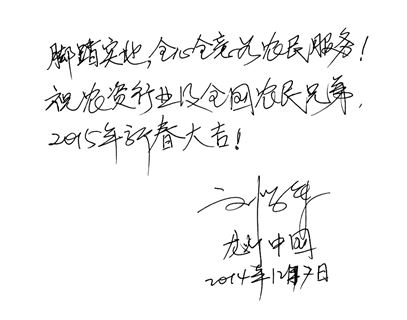 脚踏实地,全心全意为农民服务!
祝农资行业及全国农民兄弟,
2015年新春大吉!
中国
2014年12月7日